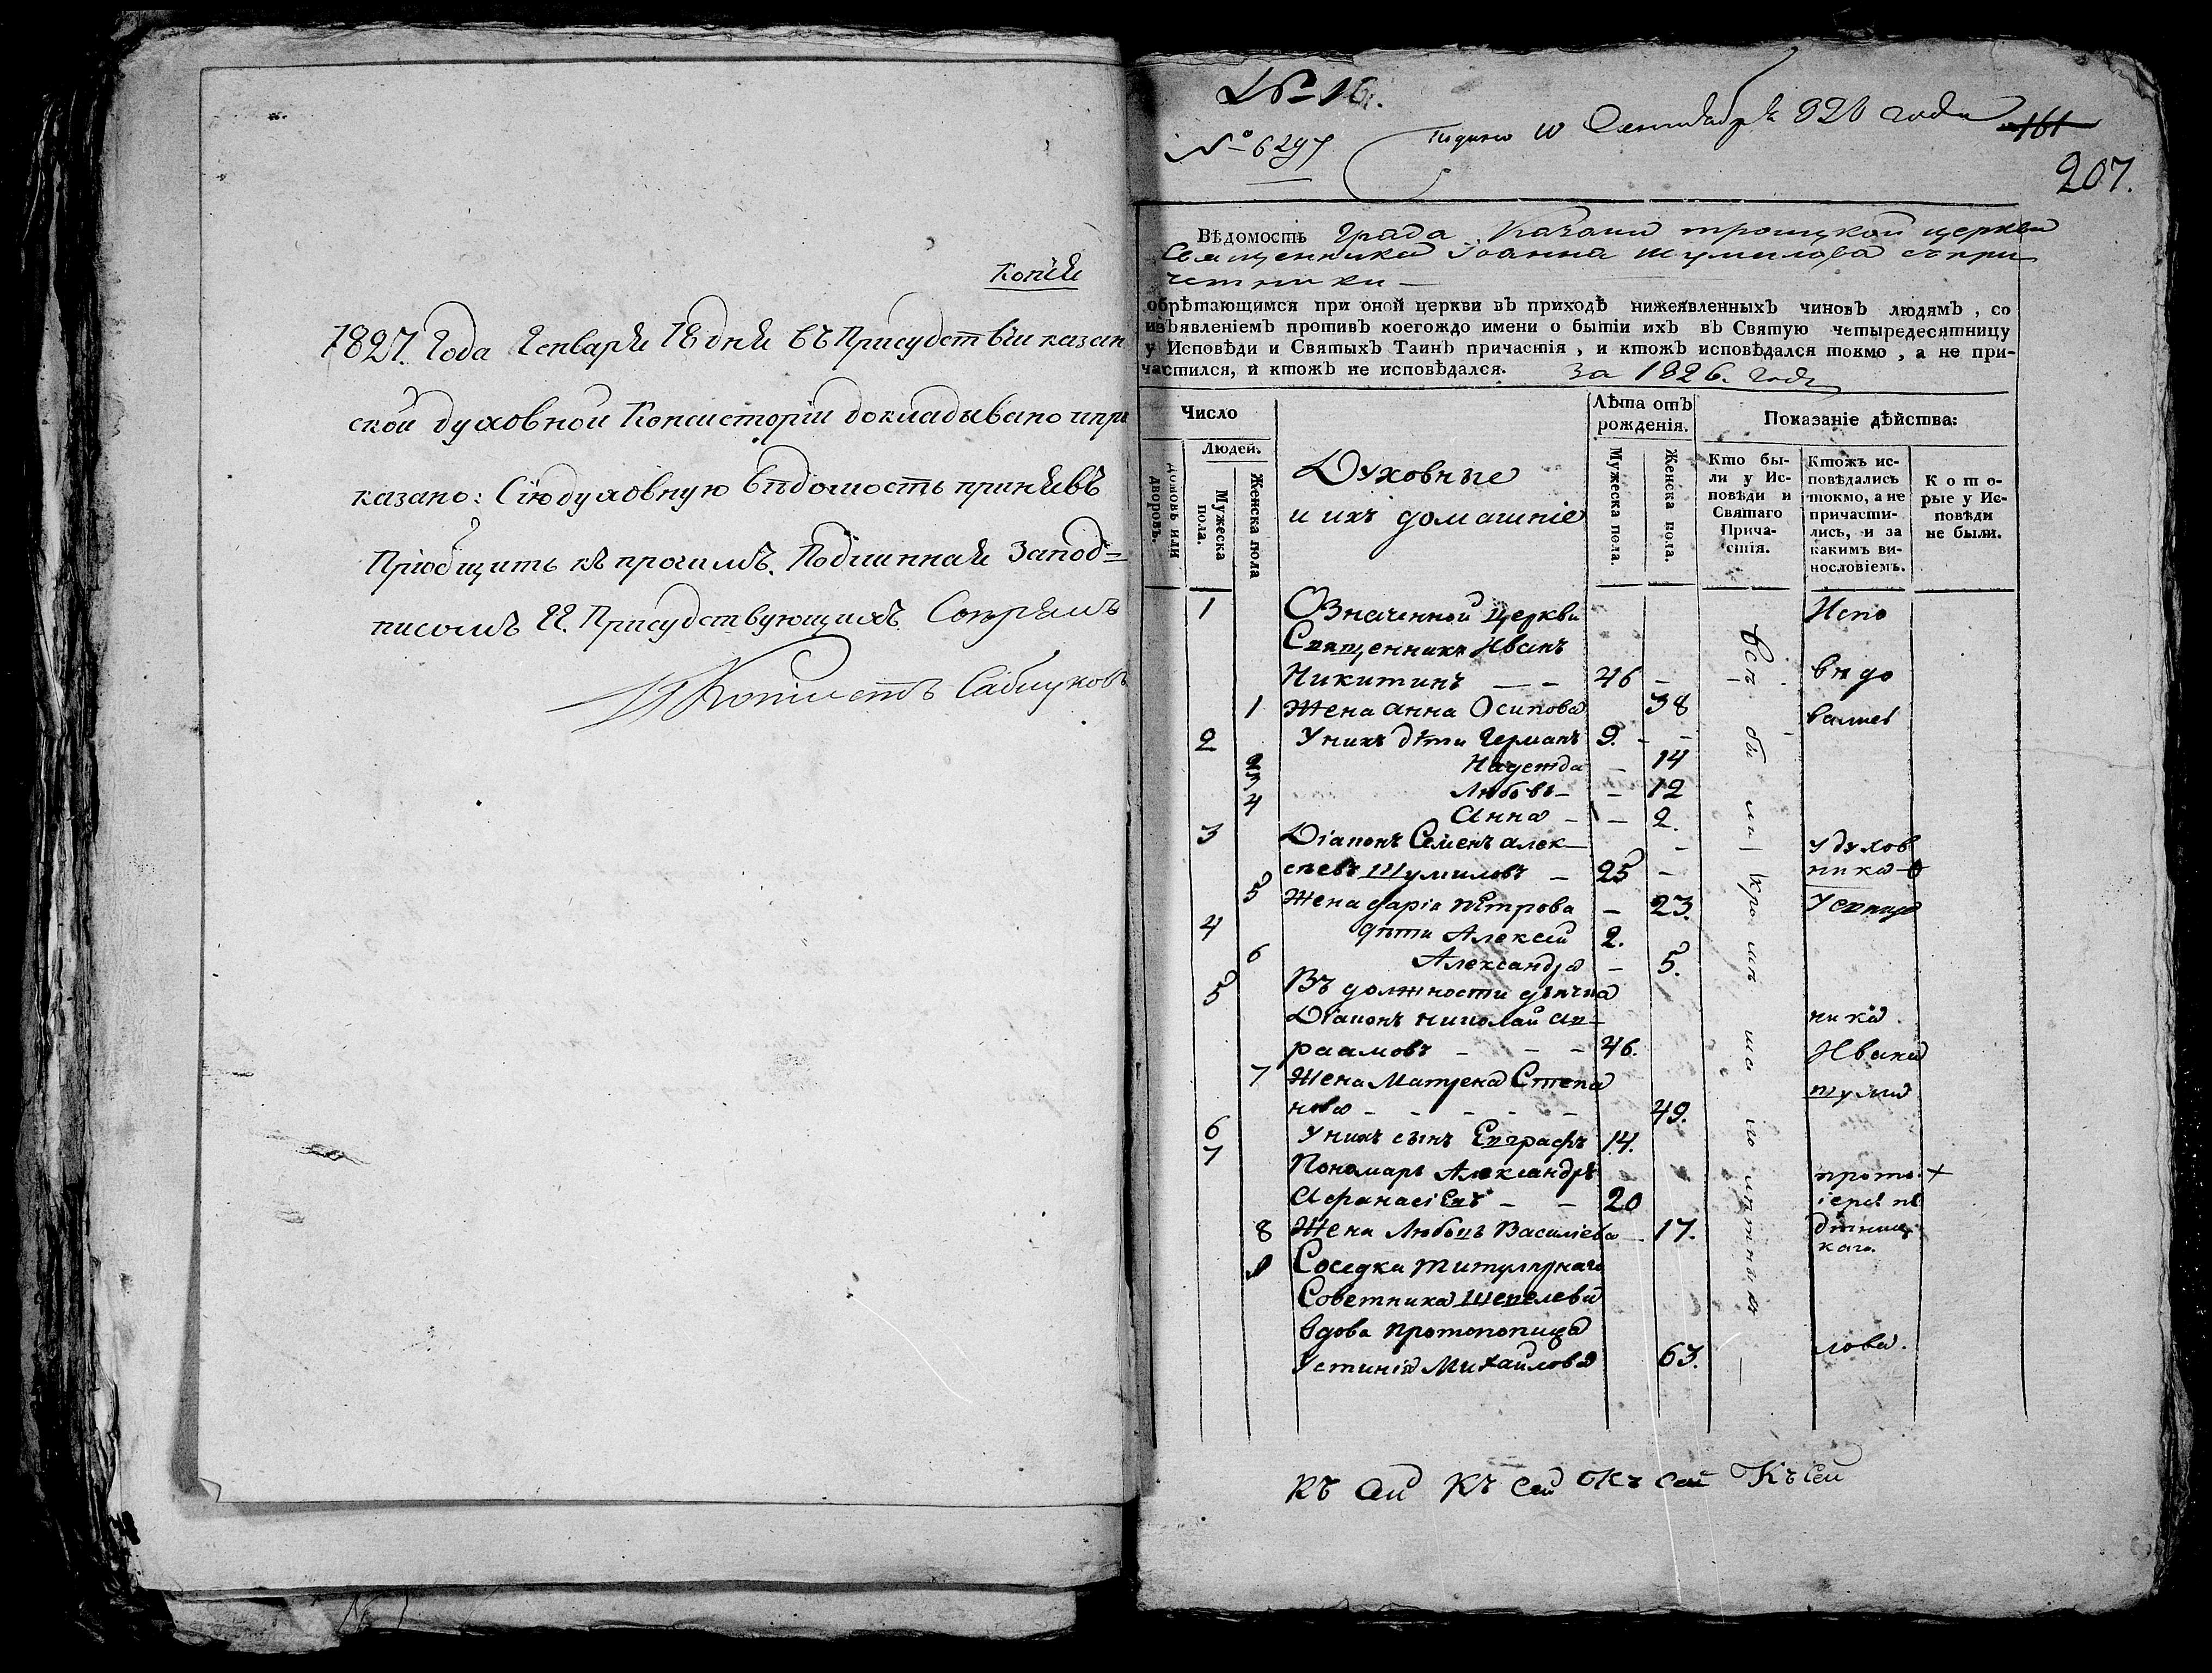 Копія
1827. Года Генваря 18 дня въ Присудствіи казан
ской духовной Консисторіи докладывано и при
казано: Сію духовную вѣдомость принявъ
Пріобщить къ прочимъ. Подлинная за под=
писомъ гг. Присудствующихъ. Сверялъ
Копіистъ Саблуковъ
№ 16.
№ 6297 Подано 10 Сентября 826 года 161
207.
Вѣдомость Града Казани троицкой церкви
Священника Іоанна Шумилова съ при
четники —
обрѣтающимся при оной церкви въ приходѣ нижеявленныхъ чиновъ людямъ, со
изъявленіемъ противъ коегождо имени о бытіи ихъ въ Святую четыредесятницу
у Исповѣди и Святыхъ Таинъ причастія, и ктожъ исповѣдался токмо, а не при-
частился, и ктожъ не исповѣдался. За 1826. годъ
Число Лѣта отъ рожденія. Показаніе дѣйства:
Людей.
домовъ или дворовъ.
Мужеска пола.
Женска пола
Духовные
и ихъ домашніе
Мужеска пола.
Женска пола.
Кто бы-
ли у Ис-
повѣди и
Святаго
Прича-
стія.
Ктожъ ис-
повѣдались
токмо, а не
причасти-
лись, и за
какимъ ви-
нословіемъ.
К о т о-
рые у Ис-
повѣди
не были.
1 Означенной Церкви Испо
Священникъ Иванъ
Никитинъ — — 46 — вѣдо
1 Жена Анна Осипова 38 вались
2 У нихъ дѣти Германъ 9. - -
2 Надежда — 14
3 Любовь — — 12
4 Анна — — 2.
3 Діаконъ Семенъ Алек— - у духов
сѣевъ Шумиловъ — 25 — ника
5 Жена Дарія Петрова — 23.
4 Дѣти Алексѣй 2.
6 Александра — 5.
5 Въ должности дьячка
Діаконъ Николай Ав— ника
раамовъ — — — 46. Ивана
7 Жена Матрена Степа Шуми
нова — — — — — 49.
6 У нихъ сынъ Евграфъ 14.
7 Пономарь Александръ прото +
Афанасіевъ — — 20
8 Жена Любовь Василіева — 17.
каго.
9 Соседка титулярнаго
Советника Шепелева
Вдова протопопица
Устинія Михайлова 63. лова.
Всѣ были кромѣ малолѣтныхъ —
Къ сей Къ сей Къ сей Къ сей